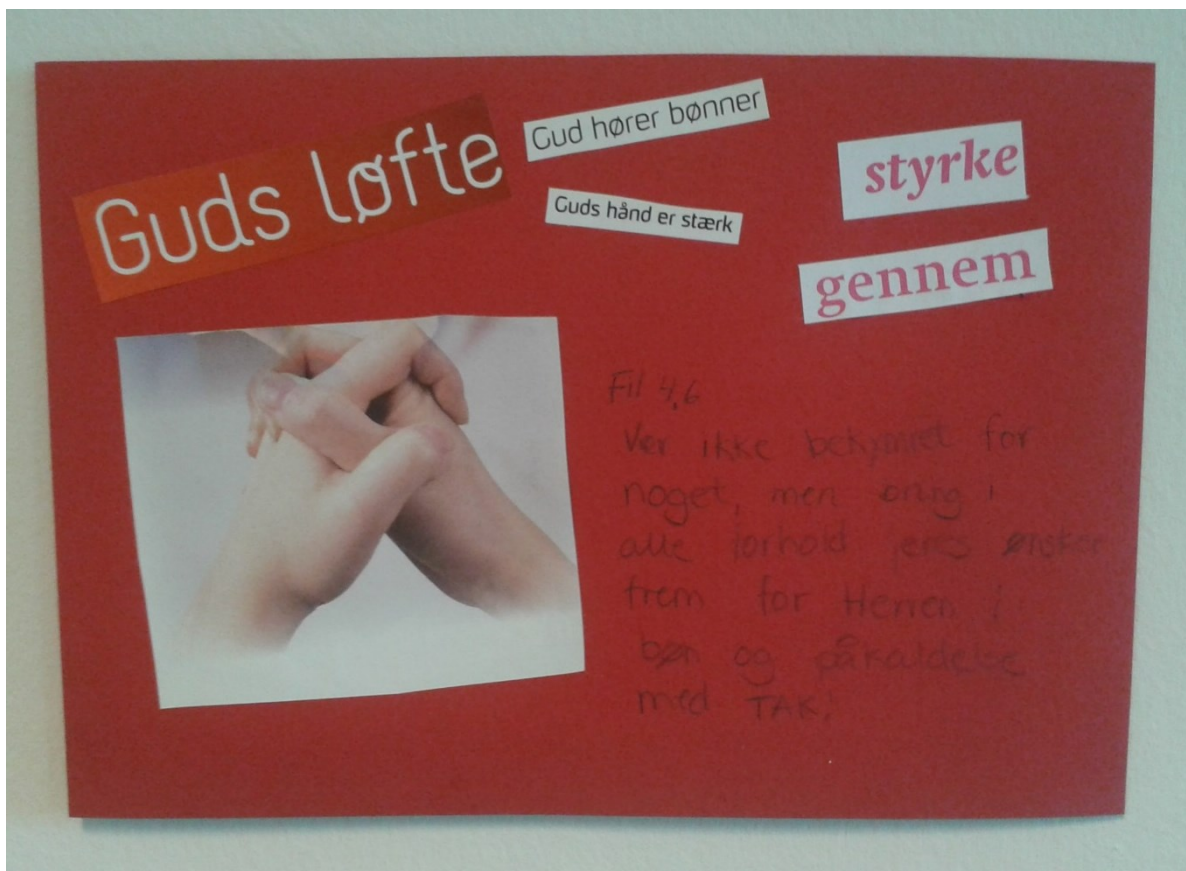 Guds løfte
Gud hører bønner
Guds hånd er stærk
styrke
gennem
Fil 4,6
Vær ikke bekymret for
noget, men bring i
alle forhold jeres ønsker
frem for Herren i
bøn og påkaldelse
med TAK!